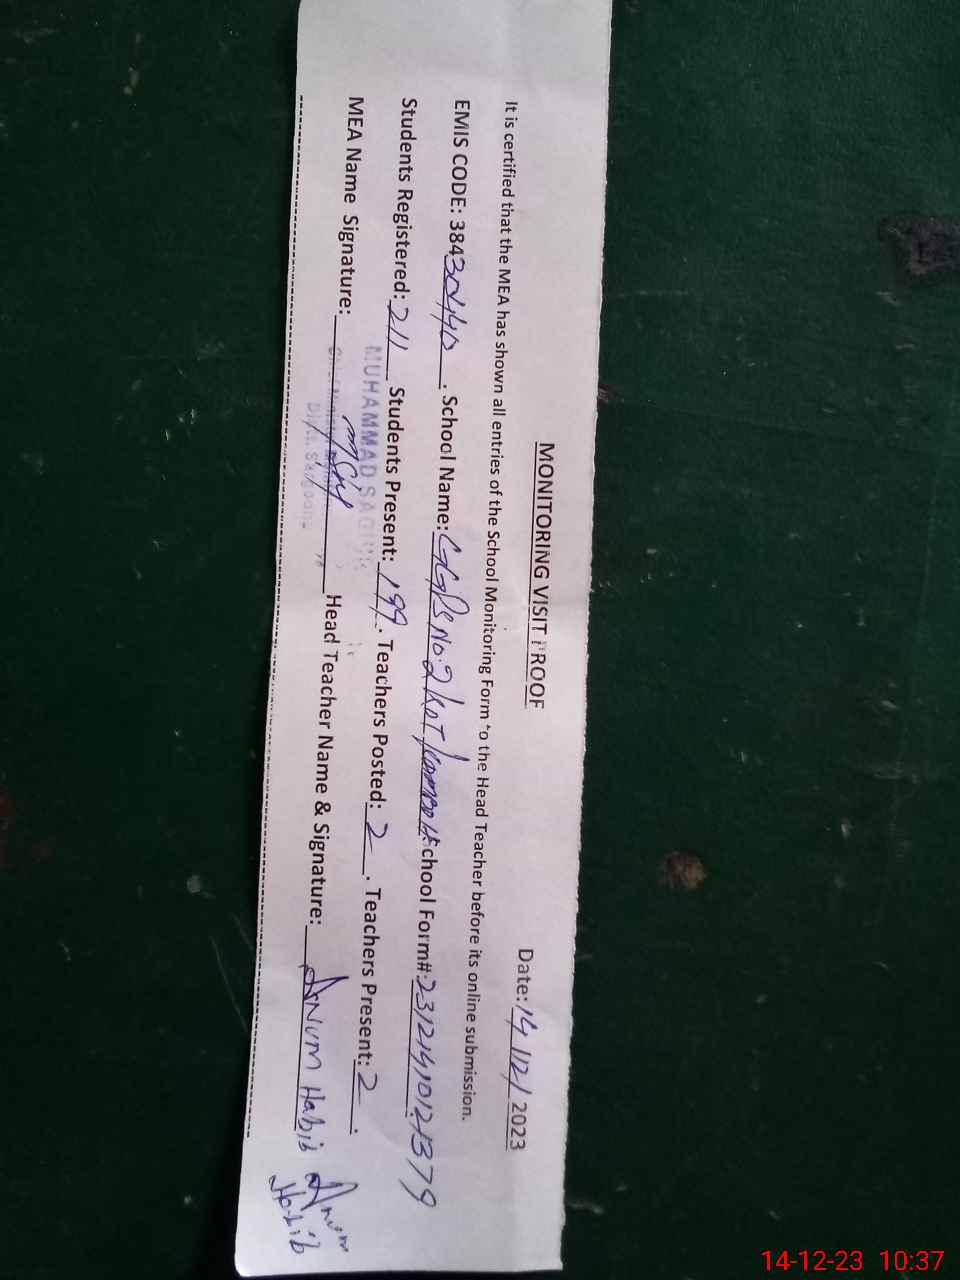 MONITORING VISIT PROOF
Date: 14/12/2023
It is certified that the MEA has shown all entries of the School Monitoring Form to the Head Teacher before its online submission.
EMIS CODE: 38430440. School Name: GGPS No.2 KOT School Form#: 23121410121379
Students Registered: 211 Students Present: 199. Teachers Posted: 2. Teachers Present: 2.
MUHAMMAD
MEA Name Signature: Head Teacher Name & Signature: ANUM Habib Anum Habib
14-12-23 10:37